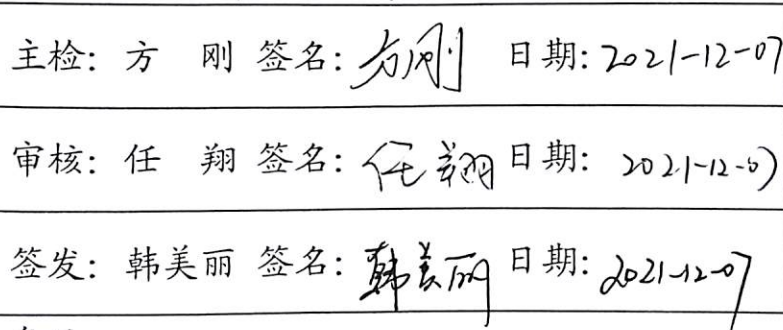 主检: 方 刚 签名: 方刚 日期: 2021-12-07
审核: 任 翔 签名: 任翔 日期: 2021-12-07
签发: 韩美丽 签名: 韩美丽 日期: 2021-12-07